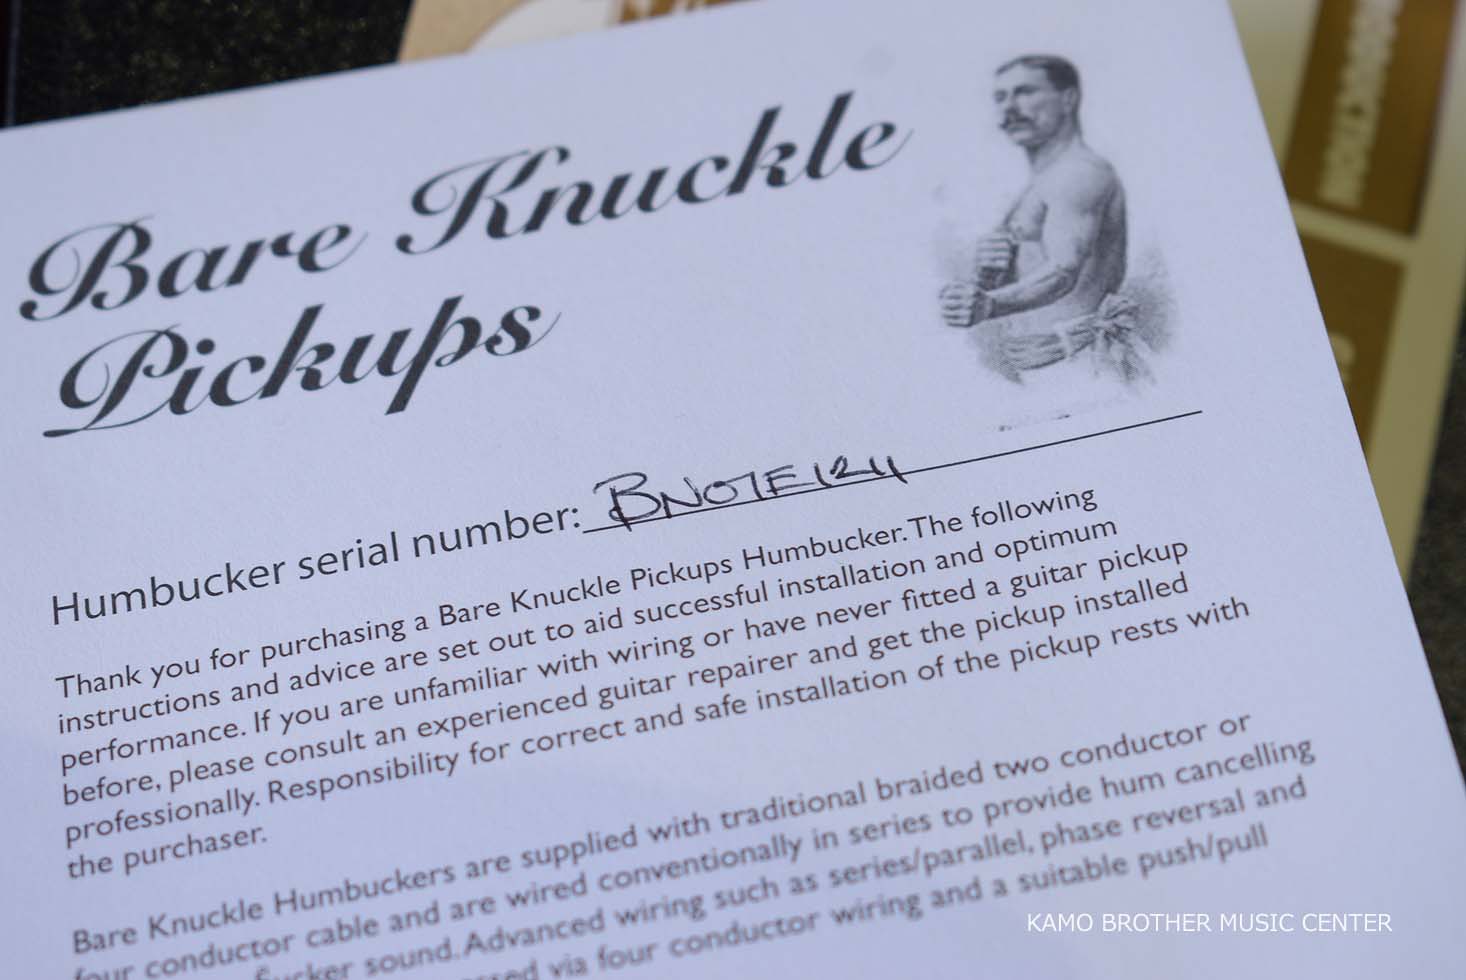 Bare Knuckle
Pickups
Humbucker serial number: BNOTE1211
Thank you for purchasing a Bare Knuckle Pickups Humbucker. The following
instructions and advice are set out to aid successful installation and optimum
performance. If you are unfamiliar with wiring or have never fitted a guitar pickup
before, please consult an experienced guitar repairer and get the pickup installed
professionally. Responsibility for correct and safe installation of the pickup rests with
the purchaser.
Bare Knuckle Humbuckers are supplied with traditional braided two conductor or
four conductor cable and are wired conventionally in series to provide hum cancelling
sound. Advanced wiring such as series/parallel, phase reversal and
via four conductor wiring and a suitable push/pull
KAMO BROTHER MUSIC CENTER